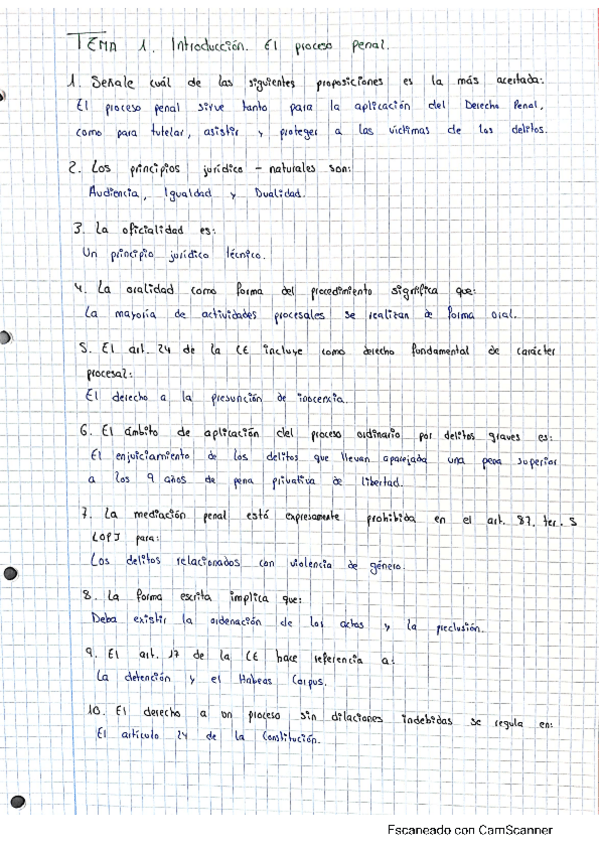 TEMA 1. Introducción. El proceso penal.
1. Señale cuál de las siguientes proposiciones es la más acertada:
El proceso penal sirve tanto para la aplicación del Derecho Penal,
como para tutelar, asistir y proteger a las víctimas de los delitos.
2. Los principios jurídico - naturales son:
Audiencia, Igualdad y Dualidad.
3. La oficialidad es:
Un principio jurídico técnico.
4. La oralidad como forma del procedimiento significa que:
La mayoría de actividades procesales se realizan de forma oral.
5. El art. 24 de la CE incluye como derecho fundamental de carácter
procesal:
El derecho a la presunción de inocencia.
6. El ámbito de aplicación del proceso ordinario por delitos graves es:
El enjuiciamiento de los delitos que llevan aparejada una pena superior
a los 9 años de pena privativa de libertad.
7. La mediación penal está expresamente prohibida en el art. 87. ter. 5
LOPJ para:
Los delitos relacionados con violencia de género.
8. La forma escrita implica que:
Deba existir la ordenación de los actos y la preclusión.
9. El art. 17 de la CE hace referencia a:
La detención y el Habeas Corpus.
10. El derecho a un proceso sin dilaciones indebidas se regula en:
El artículo 24 de la Constitución.
Escaneado con CamScanner